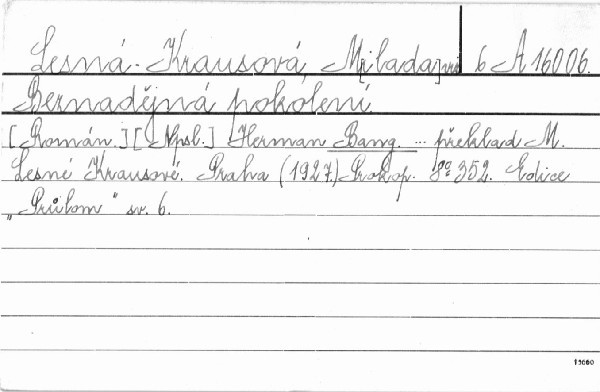 Lesná-Krausová, M[ilada] 6 A 16006.
Bernadějná pokolení
[Román.] [Npsl.] Herman Bang. ... překlad M.
Lesné Krausové. Praha (1927.) Prokop. 8º 352. Edice
„Průlom" sv. 6.